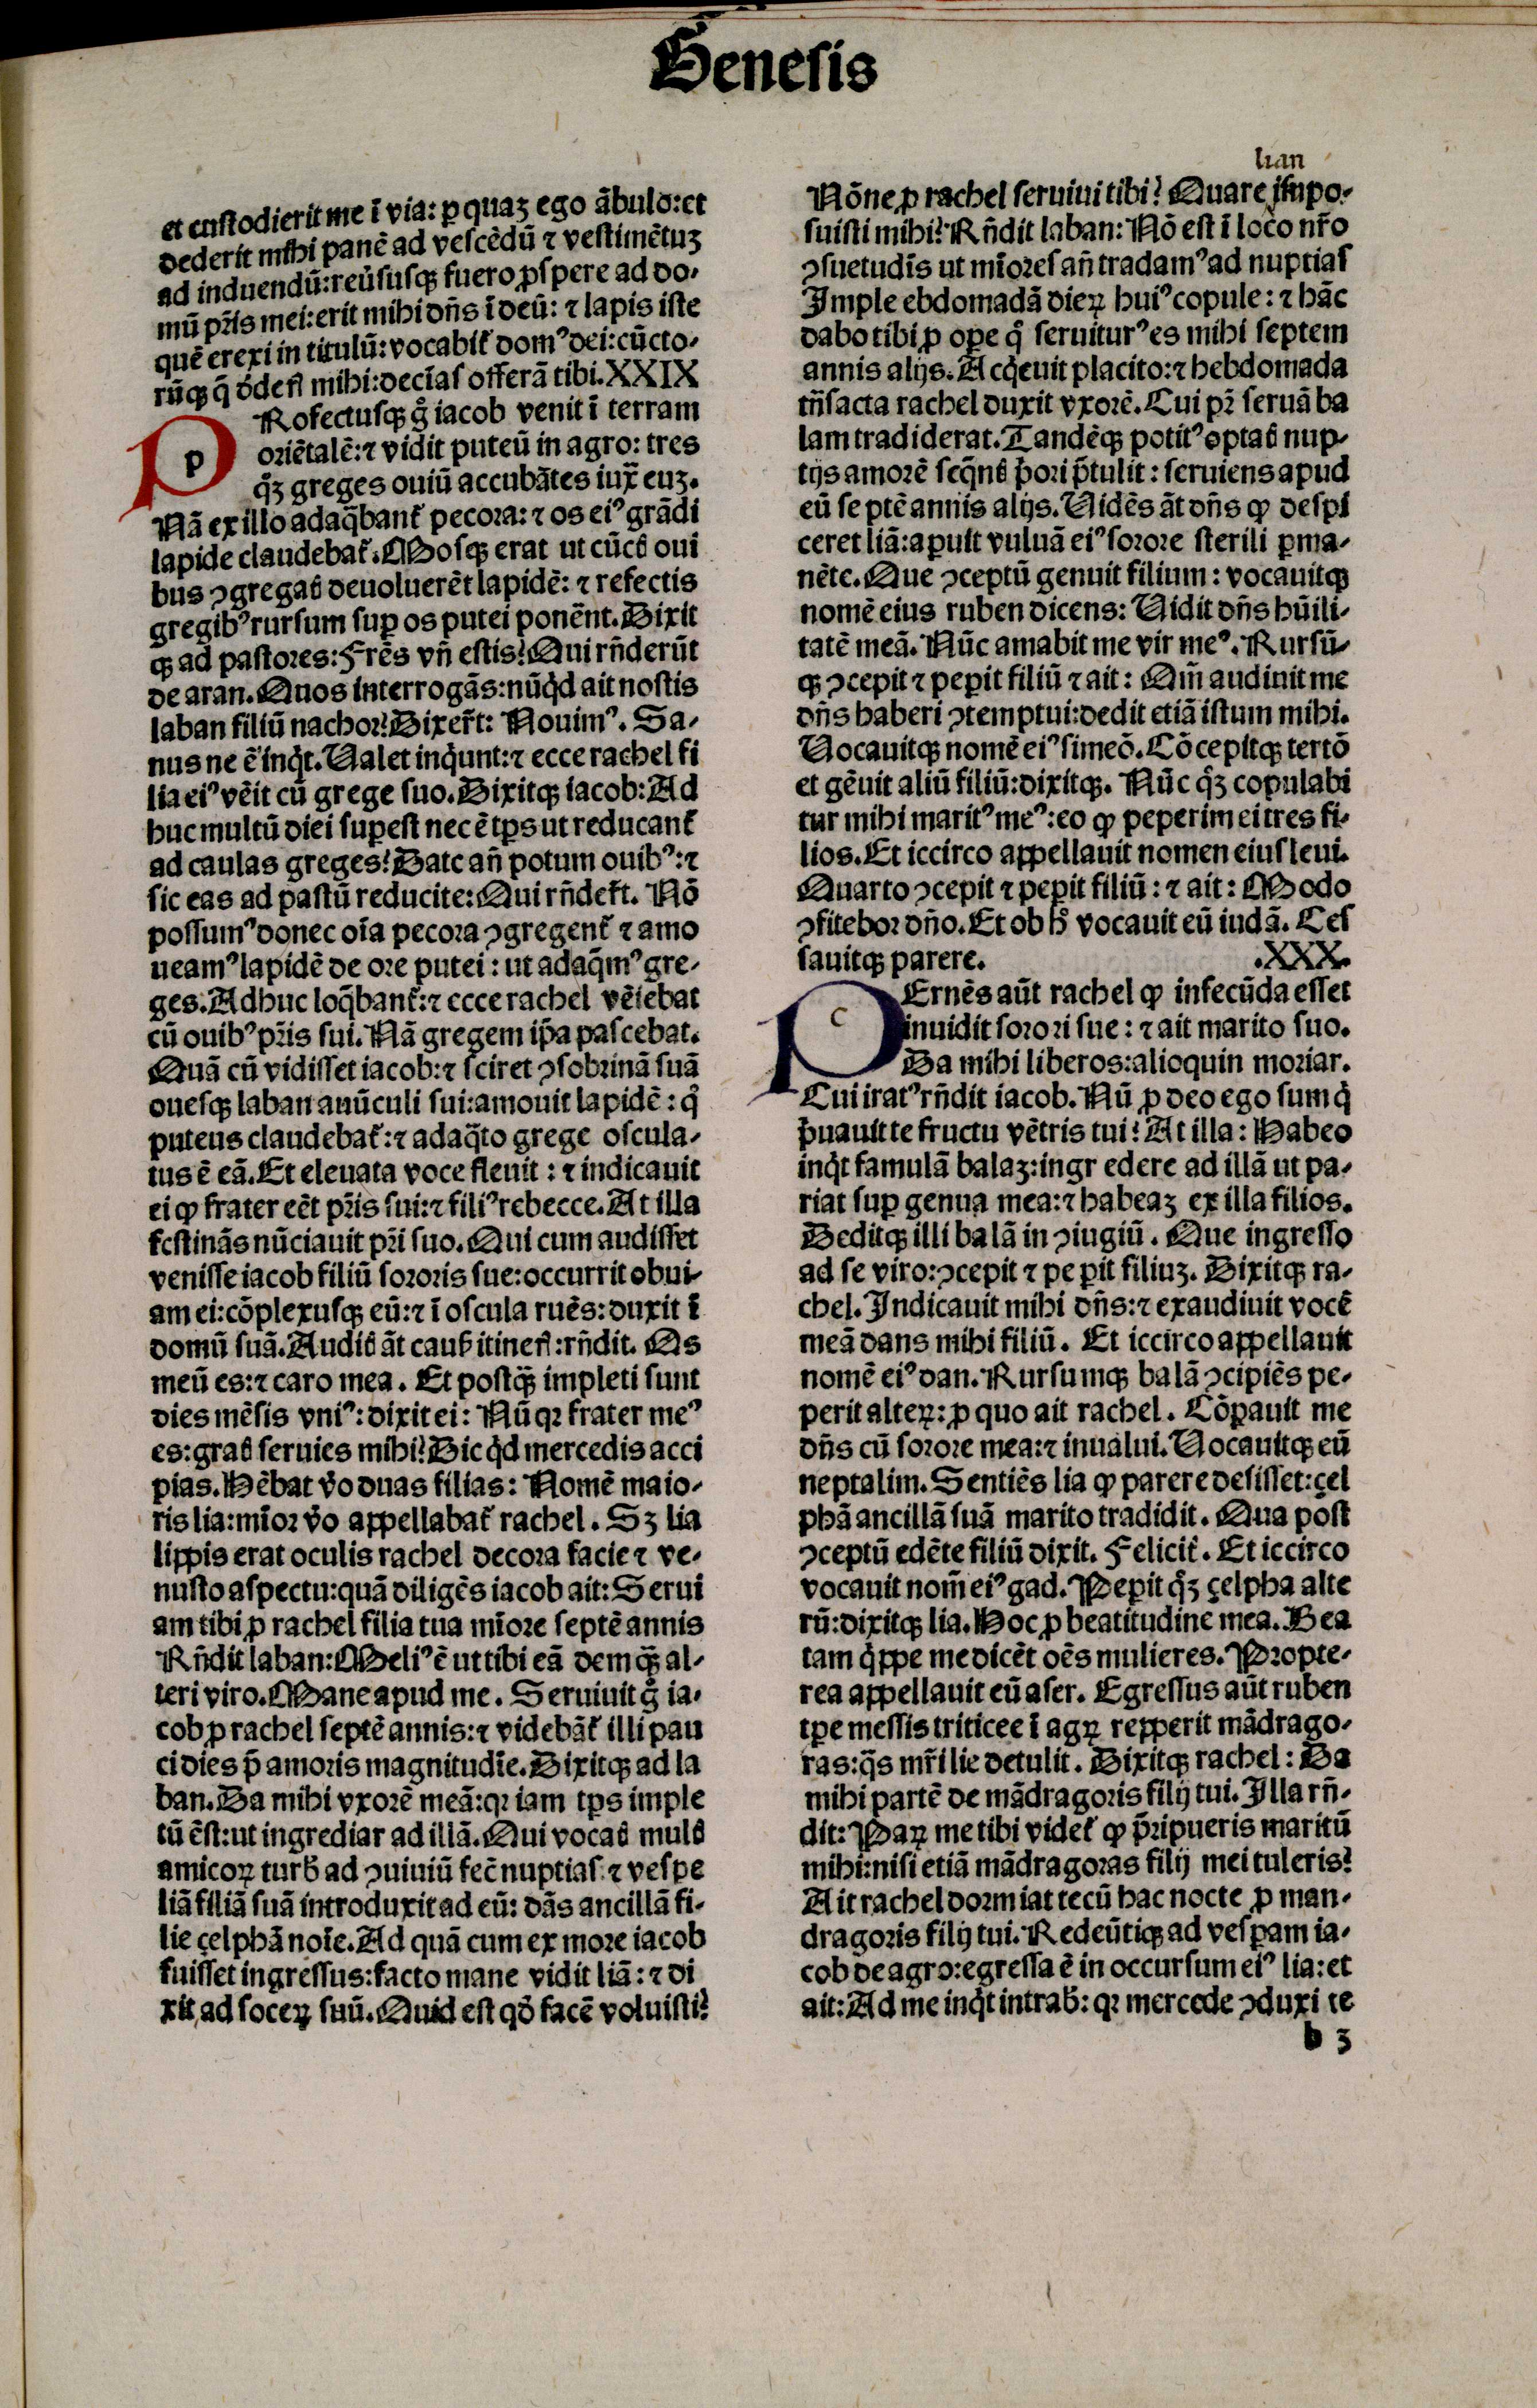 Genesis
et custodierit me ī via: ꝑ quaꝫ ego ābulo: et
dederit mihi panē ad vescēdū ⁊ vestimētuꝫ
ad induendū: reūsusqꝫ fuero ꝓspere ad do-
mū pr̄is mei: erit mihi dn̄s ī deū: ⁊ lapis iste
quē erexi in titulū: vocabit᷑ domꝰ dei: cūcto-
rūqꝫ q̄ dedeꝭ mihi: decīas offerā tibi. XXIX
pRofectusqꝫ gͦ iacob venit ī terram
oriētalē: ⁊ vidit puteū in agro: tres
qͦꝫ greges ouiū accubātes iux̄ euꝫ.
Nā ex illo adaq̄bant᷑ pecora: ⁊ os eiꝰ grādi
lapide claudebat᷑. Mosqꝫ erat ut cūcẜ oui
bus ꝯgregaẜ deuoluerēt lapidē: ⁊ refectis
gregibꝰ rursum suꝑ os putei ponēnt. Dixit
qꝫ ad pastores: Frēs vn̄ estis? Qui rn̄derūt
de aran. Quos interrogās: nūqͥd ait nostis
laban filiū nachor? Dixer̄t: Nouimꝰ. Sa-
nus ne ē inqͥt. Ualet inqͥunt: ⁊ ecce rachel fi
lia eiꝰ vēit cū grege suo. Dixitqꝫ iacob: Ad
huc multū diei suꝑest nec ē tp̄s ut reducant᷑
ad caulas greges? Date an̄ potum ouibꝰ: ⁊
sic eas ad pastū reducite: Qui rn̄der̄t. Nō
possumꝰ donec oīa pecora ꝯgregent᷑ ⁊ amo
ueamꝰ lapidē de ore putei: ut adaq̄mꝰ gre-
ges. Adhuc loq̄bant᷑: ⁊ ecce rachel vēiebat
cū ouibꝰ pr̄is sui. Nā gregem ip̄a pascebat.
Quā cū vidisset iacob: ⁊ sciret ꝯsobrinā suā
ouesqꝫ laban auūculi sui: amouit lapidē: qͦ
puteus claudebat᷑: ⁊ adaq̄to grege oscula-
tus ē eā. Et eleuata voce fleuit: ⁊ indicauit
ei ꝙ frater eēt pr̄is sui: ⁊ filiꝰ rebecce. At illa
festinās nūciauit pr̄i suo. Qui cum audisset
venisse iacob filiū sororis sue: occurrit obui-
am ei: cōplexusqꝫ eū: ⁊ ī oscula ruēs: duxit ī
domū suā. Audiẜ āt cauẜ itineꝭ: rn̄dit. Os
meū es: ⁊ caro mea. Et postqꝫ̄ impleti sunt
dies mēsis vniꝰ: dixit ei: Nū qꝛ frater meꝰ
es: graẜ seruies mihi? Dic qͥd mercedis acci
pias. Hēbat v̊o duas filias: Nomē maio-
ris lia: mīor v̊o appellabat᷑ rachel. Sꝫ lia
lippis erat oculis rachel decora facie ⁊ ve-
nusto aspectu: quā diligēs iacob ait: Serui
am tibi ꝓ rachel filia tua mīore septē annis
Rn̄dit laban: Meliꝰ ē ut tibi eā dem qꝫ̄ al-
teri viro. Mane apud me. Seruiuit gͦ ia-
cob ꝓ rachel septē annis: ⁊ videbāt᷑ illi pau
ci dies p̄ amoris magnitudīe. Dixitqꝫ ad la
ban. Da mihi vxorē meā: qꝛ iam tp̄s imple
tū ēst: ut ingrediar ad illā. Qui vocaẜ mulẜ
amicoꝝ turẜ ad ꝯuiuiū fec̄ nuptias ⁊ vespe
liā filiā suā introduxit ad eū: dās ancillā fi-
lie çelphā noīe. Ad quā cum ex more iacob
fuisset ingressus: facto mane vidit liā: ⁊ di
xit ad soceꝝ suū. Quid est qō facē voluisti?
lian
Nōne ꝓ rachel seruiui tibi? Quare impo-
suisti mihi? Rn̄dit laban: Nō est ī loco nr̄o
ꝯsuetudīs ut mīores an̄ tradamꝰ ad nuptias
Imple ebdomadā dieꝝ huiꝰ copule: ⁊ hāc
dabo tibi ꝓ oꝑe qͦ seruiturꝰ es mihi septem
annis alijs. Acqͥeuit placito: ⁊ hebdomada
trn̄sacta rachel duxit vxorē. Cui pr̄ seruā ba
lam tradiderat. Tandēqꝫ potitꝰ optaẜ nup-
tijs amorē seq̄nẜ p̄ori p̄tulit: seruiens apud
eū septē annis alijs. Uidēs āt dn̄s ꝙ despi
ceret liā: aperuit vuluā eiꝰ sorore sterili ꝑma-
nēte. Que ꝯceptū genuit filium: vocauitqꝫ
nomē eius ruben dicens: Uidit dn̄s hūili-
tatē meā. Nūc amabit me vir meꝰ. Rursū-
qꝫ ꝯcepit ⁊ peꝑit filiū ⁊ ait: Qm̄ audiuit me
dn̄s haberi ꝯtemptui: dedit etiā istum mihi.
Uocauitqꝫ nomē eiꝰ simeō. Cōcepitqꝫ tertō
et gēuit aliū filiū: dixitqꝫ. Nūc qͦꝫ copulabi
tur mihi maritꝰ meꝰ: eo ꝙ peperim ei tres fi-
lios. Et iccirco appellauit nomen eius leui.
Quarto ꝯcepit ⁊ peꝑit filiū: ⁊ ait: Modo
ꝯfitebor dn̄o. Et ob hͦ vocauit eū iudā. Ces
sauitqꝫ parere. .XXX.
cErnēs aūt rachel ꝙ infecūda esset
inuidit sorori sue: ⁊ ait marito suo.
Da mihi liberos: alioquin moriar.
Cui iratꝰ rn̄dit iacob. Nū ꝓ deo ego sum qͥ
p̄uauit te fructu vētris tui? At illa: Habeo
inqͥt famulā balaꝫ: ingredere ad illā ut pa-
riat suꝑ genua mea: ⁊ habeaꝫ ex illa filios.
Deditqꝫ illi balā in ꝯiugiū. Que ingresso
ad se viro: ꝯcepit ⁊ peꝑit filiuꝫ. Dixitqꝫ ra-
chel. Indicauit mihi dn̄s: ⁊ exaudiuit vocē
meā dans mihi filiū. Et iccirco appellauit
nomē eiꝰ dan. Rursumqꝫ balā ꝯcipiēs pe-
perit alteꝝ: ꝓ quo ait rachel. Cōꝑauit me
dn̄s cū sorore mea: ⁊ inualui. Uocauitqꝫ eū
neptalim. Sentiēs lia ꝙ parere desisset: çel
phā ancillā suā marito tradidit. Qua post
ꝯceptū edēte filiū dixit. Felicit᷑. Et iccirco
vocauit nom̄ eiꝰ gad. Peꝑit qͦꝫ çelpha alte
rū: dixitqꝫ lia. Hoc ꝓ beatitudine mea. Bea
tam qͥppe me dicēt oēs mulieres. Propte-
rea appellauit eū aser. Egressus aūt ruben
tꝑe messis triticee ī agꝝ repperit mādrago-
ras: q̄s mr̄i lie detulit. Dixitqꝫ rachel: Da
mihi partē de mādragoris filij tui. Illa rn̄-
dit: Paꝝ me tibi videt᷑ ꝙ p̄ripueris maritū
mihi: nisi etiā mādragoras filij mei tuleris?
Ait rachel dormiat tecū hac nocte ꝓ man-
dragoris filij tui. Redeūtiqꝫ ad vesꝑam ia-
cob de agro: egressa ē in occursum eiꝰ lia: et
ait: Ad me inqͥt intraẜ: qꝛ mercede ꝯduxi te
b 3